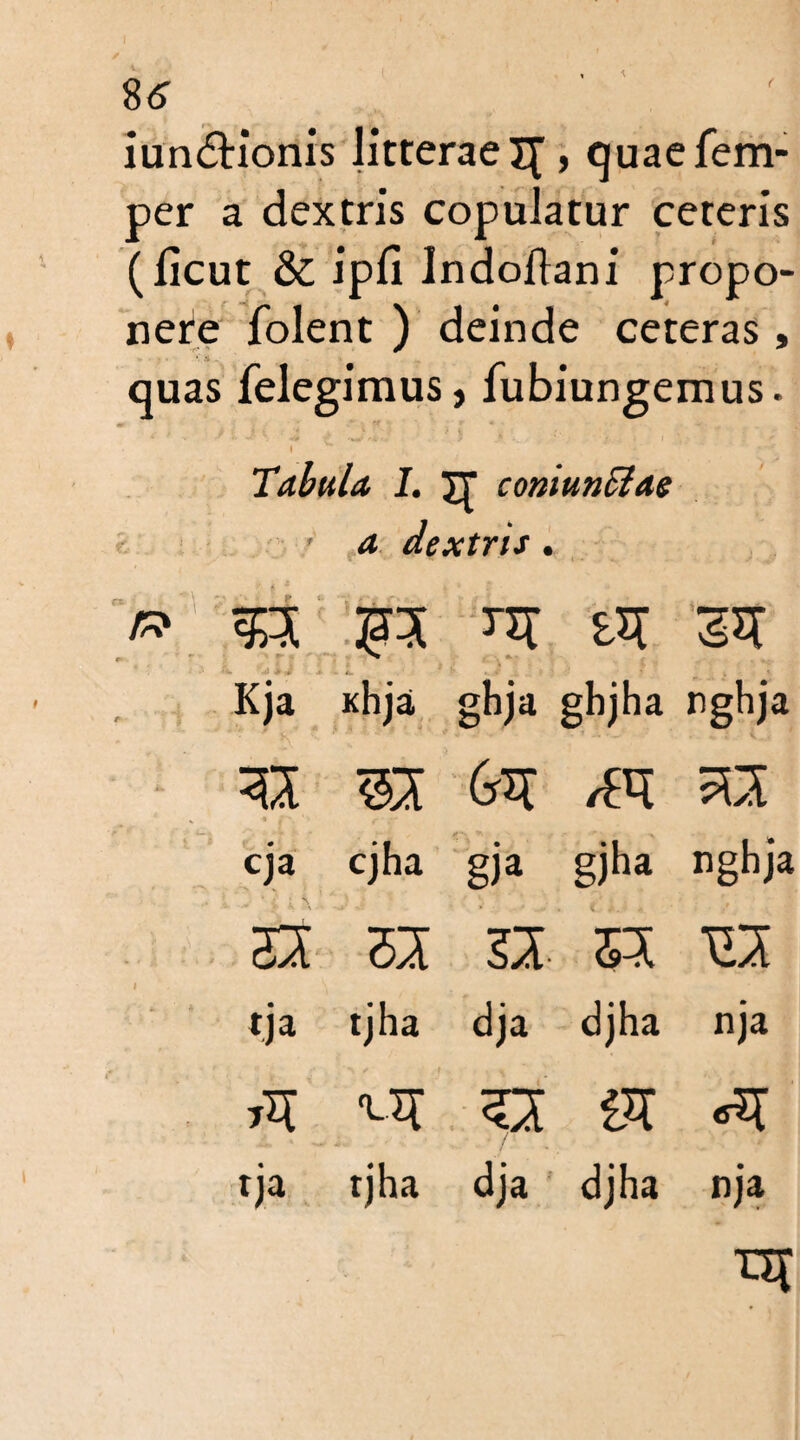 86
iunctionis litterae य, quae ſem-
per a dextris copulatur ceteris
( ſicut & ipſi Indoſtani propo-
nere ſolent ) deinde ceteras ,
quas ſelegimus, ſubiungemus.
Tabula I. य coniunctae
a dextris .
क्य ख्य ग्य घ्य ङ्य
Kja Khja ghja ghjha nghja
च्य छ्य ज्य झ्य ञ्य
cja cjha gja gjha nghja
ट्य ठ्य ड्य ढ्य ण्य
tja tjha dja djha nja
त्य थ्य द्य ध्य न्य
tja tjha dja djha nja
प्य